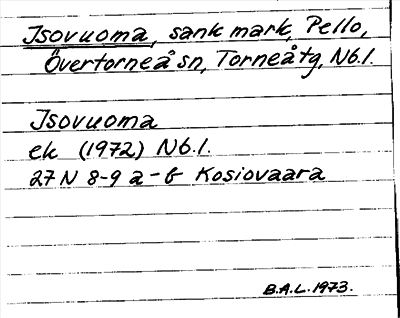 Isovuoma, sank mark, Pello,
Övertorneå sn, Torneå tg, Nb.l.
Isovuoma
ek (1972) Nb.l.
27 N 8-9 a-b Kosiovaara
B.A.L. 1973.